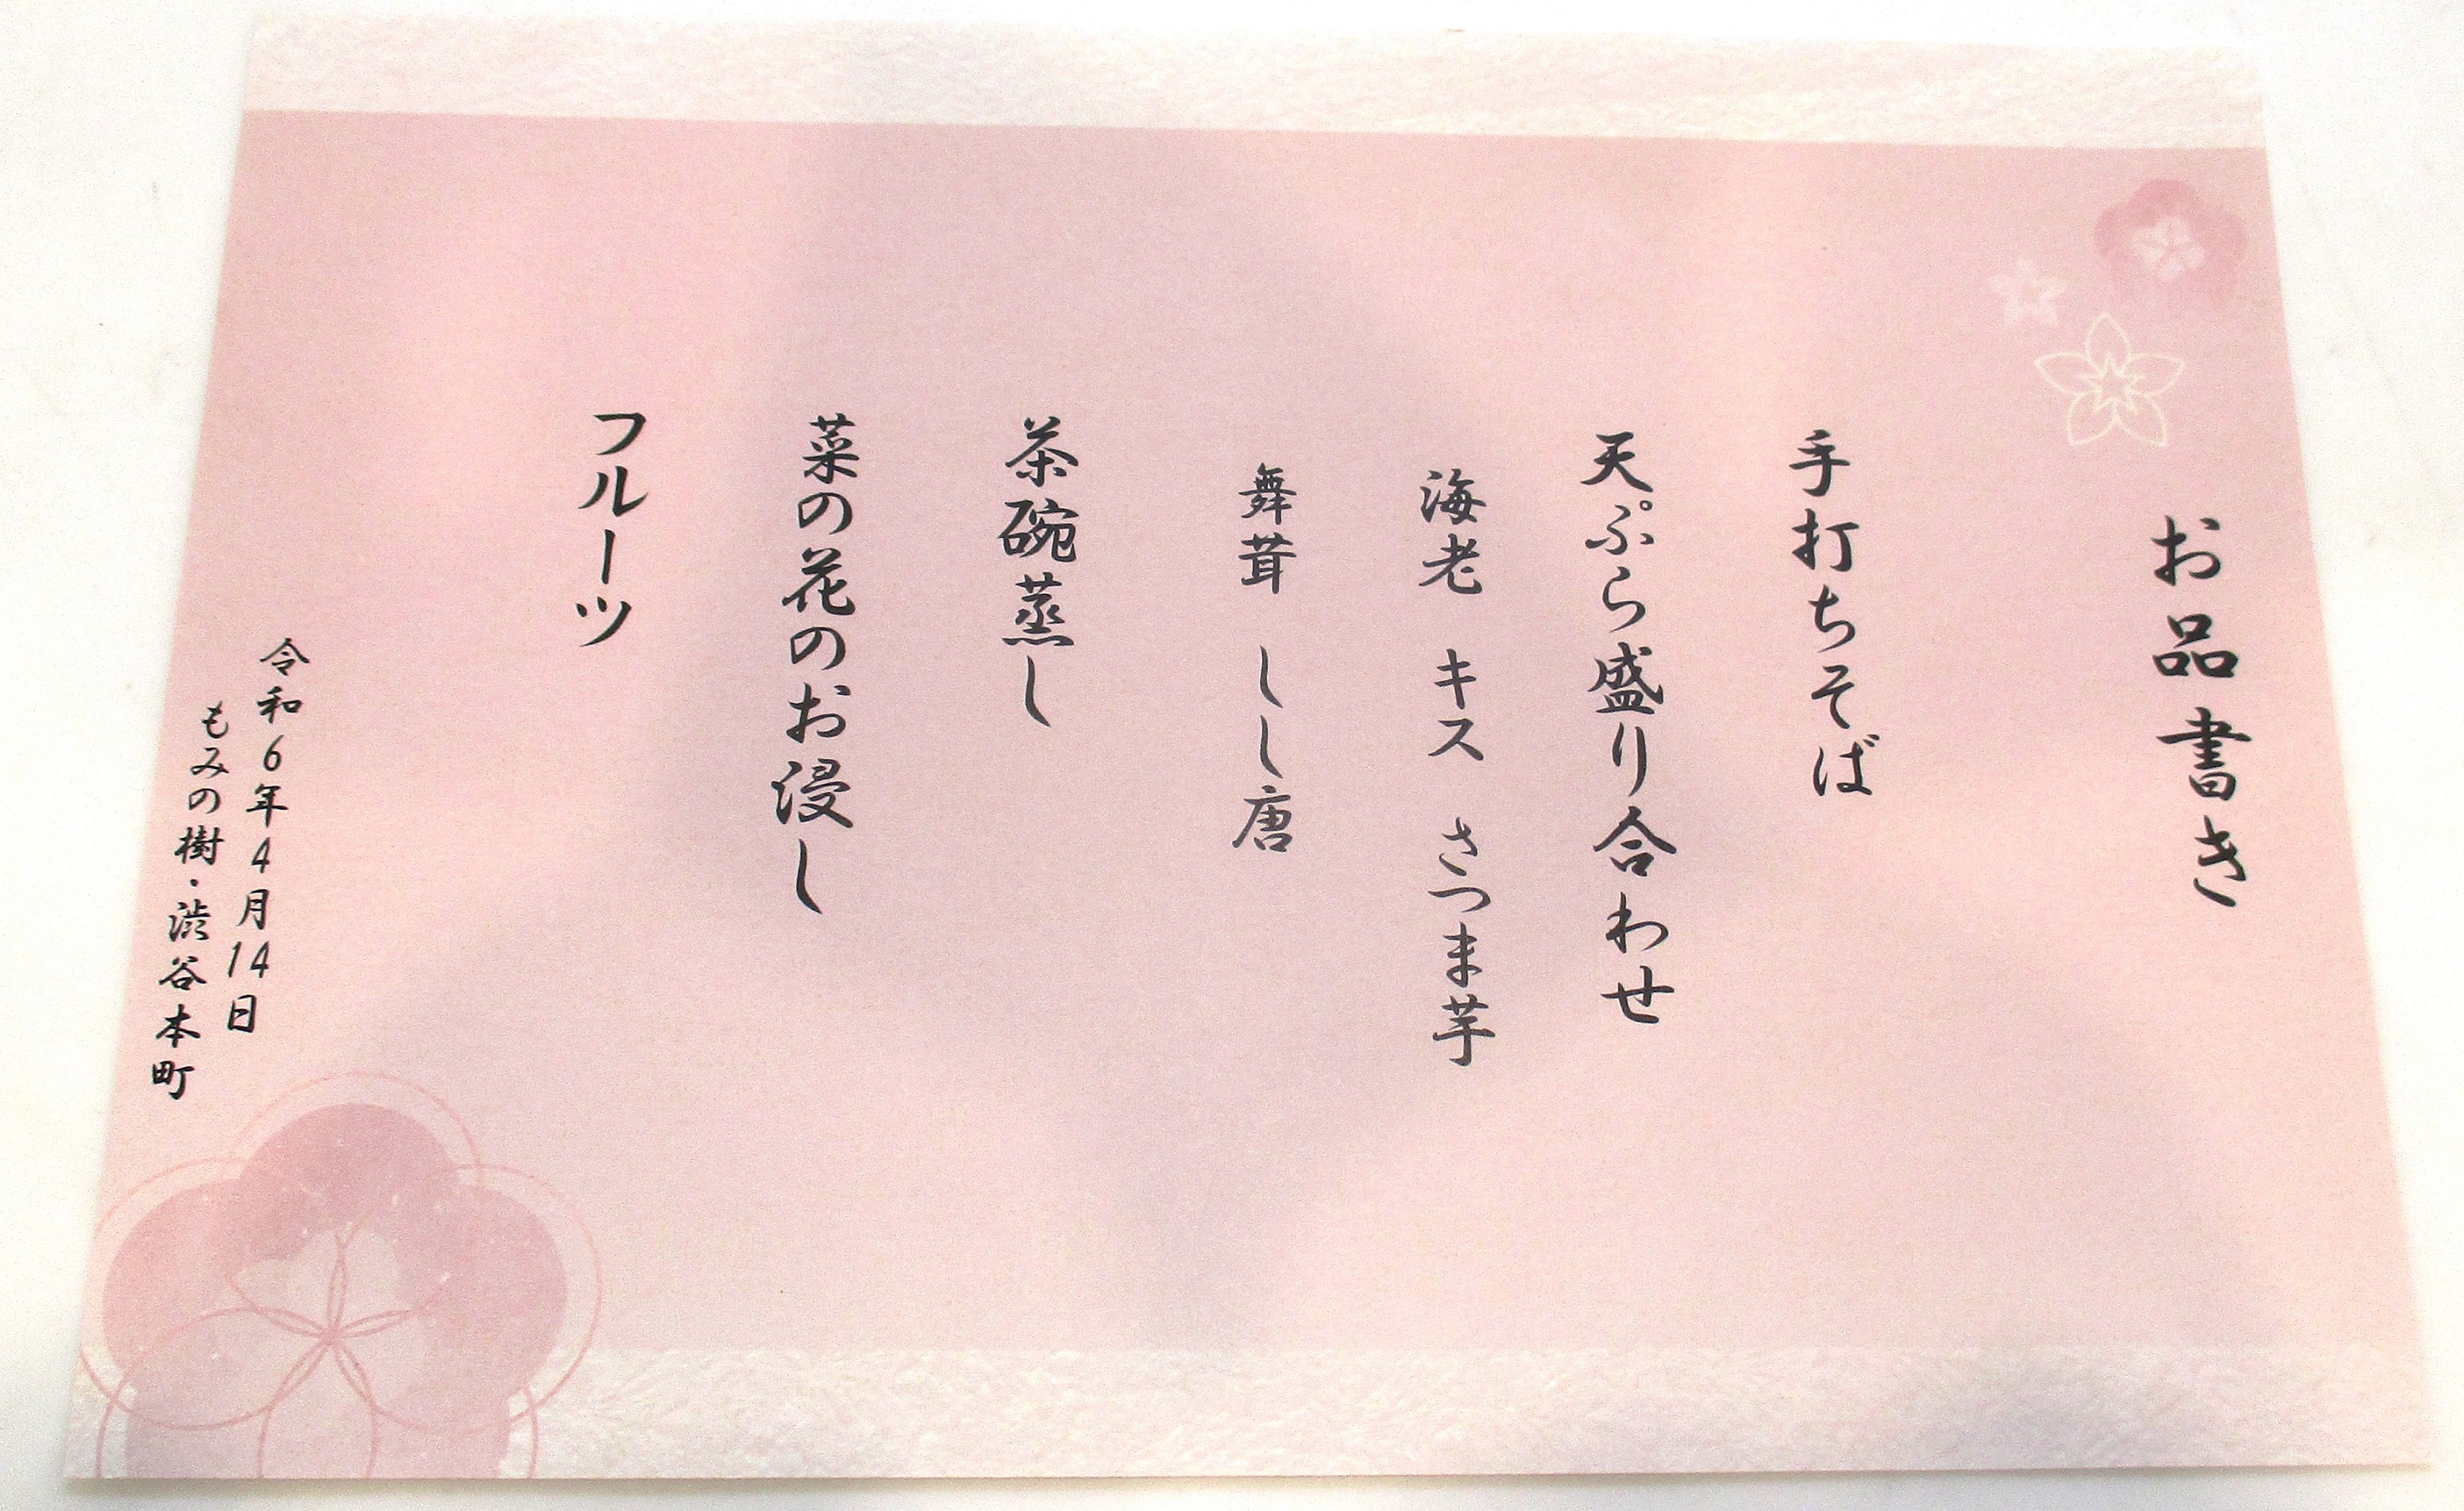 お品書き
手打ちそば
天ぷら盛り合わせ
海老　キス　さつま芋
舞茸　しし唐
茶碗蒸し
菜の花のお浸し
フルーツ
令和6年4月14日
もみの樹・渋谷本町